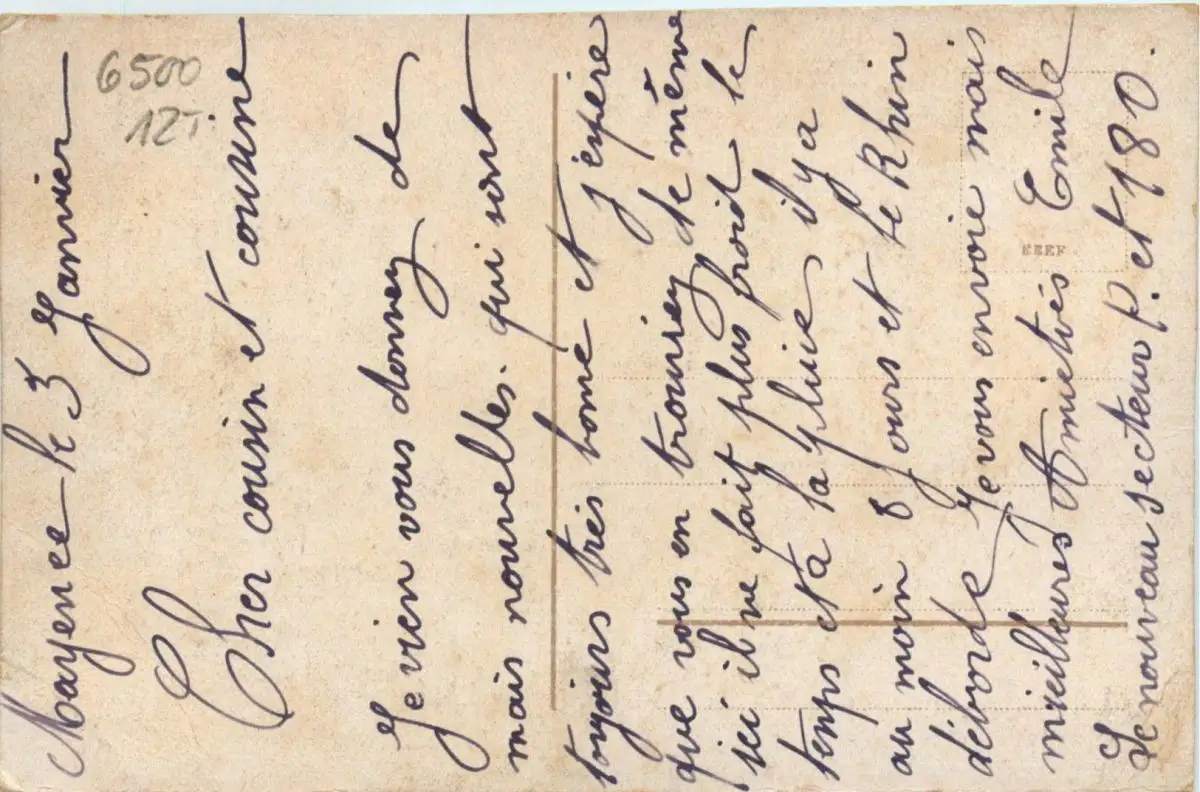 Mayence le 3 Janvier
Cher cousin et cousine
Je vien vous donney de
mais nouvelles. qui sont
toujours très bonne et j'espère
que vous en trouviey de même
ici il ne fait plus froid le
temps et a la pluie il y a
au moin 8 jours et le Rhin
déborde Je vous envoie mais
meilleures Amietiés Emile
Le nouveau secteur p. et 180.
6500
12T.
EEEF